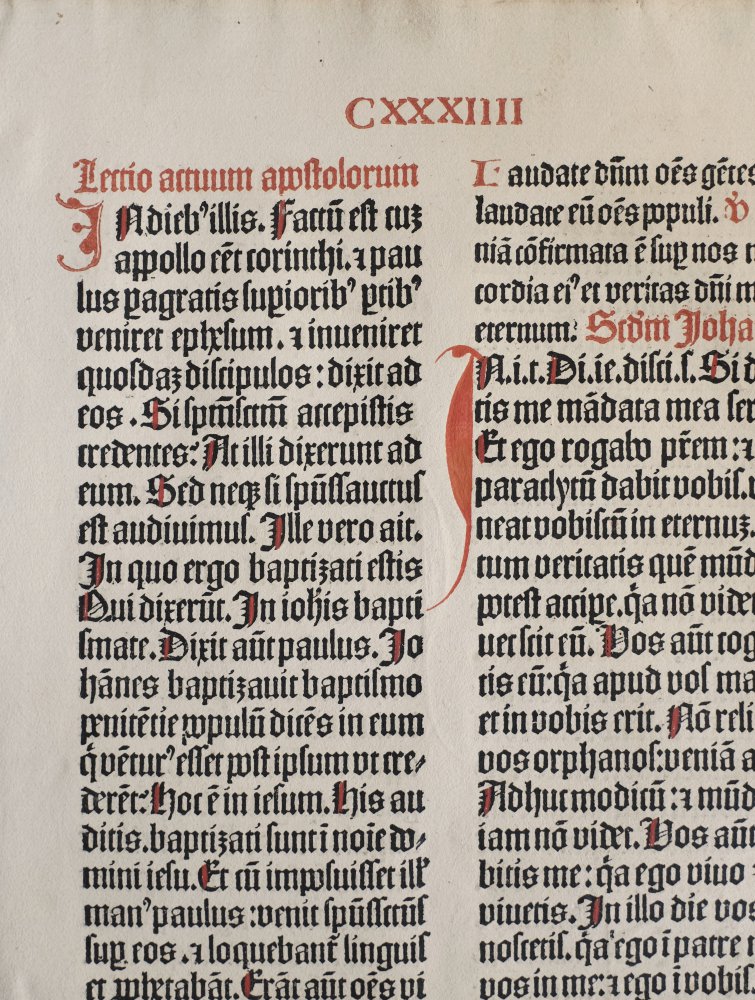 CXXXIIII
Lectio actuum apostolorum
IN dieb⁹ illis. Factū est cuꝫ
appollo eēt corinthi. ⁊ pau
lus ꝑagratis suꝑiorib⁹ ꝑtib⁹
veniret ephesum. ⁊ inueniret
quosdaꝫ discipulos : dixit ad
eos . Si spm̄ sctm̄ accepistis
credentes: At illi dixerunt ad
eum. Sed neqꝫ si spūssanctus
est audiuimus. Ille vero ait.
In quo ergo baptizati estis
Qui dixerūt. In iohis bapti
smate. Dixit aūt paulus. Jo
hānes baptizauit baptismo
penitētie populū dicēs in eum
q̇ vētur⁹ esset post ipsum vt cre⸗
derēt: Hoc ē in iesum. His au
ditis. baptizati sunt ī noīe do⸗
mini iesu. Et cū imposuisset ill'
man⁹ paulus : venit spūssctūs
suꝑ eos . ⁊ loquebant̄ linguis
et ꝓphetabāt. Erāt aūt oēs vi
Laudate dn̄m oēs gētes
laudate eū oēs populi. V
niā cōfirmata ē suꝑ nos
cordia ei⁹ et veritas dn̄i m
eternum: Scd̄m Joha
IN.i.t. Di.ie.disci.s. Si d
tis me mādata mea ser
Et ego rogabo pr̄em : ⁊
paraclytū dabit vobis.
neat vobiscū in eternuꝫ.
tum veritatis quē mūd
potest acciꝑe. q̇a nō videt
nec scit eū. Vos aūt cog
tis eū: q̇a apud vos ma
et in vobis erit. Nō reli
vos orphanos: veniā a
Adhuc modicū : ⁊ mūd
iam nō videt. Vos aūt
bitis me : q̇a ego viuo
viuetis. In illo die vos
noscetis. q̇a ego ī patre
vos in me: ⁊ ego ī vobis.